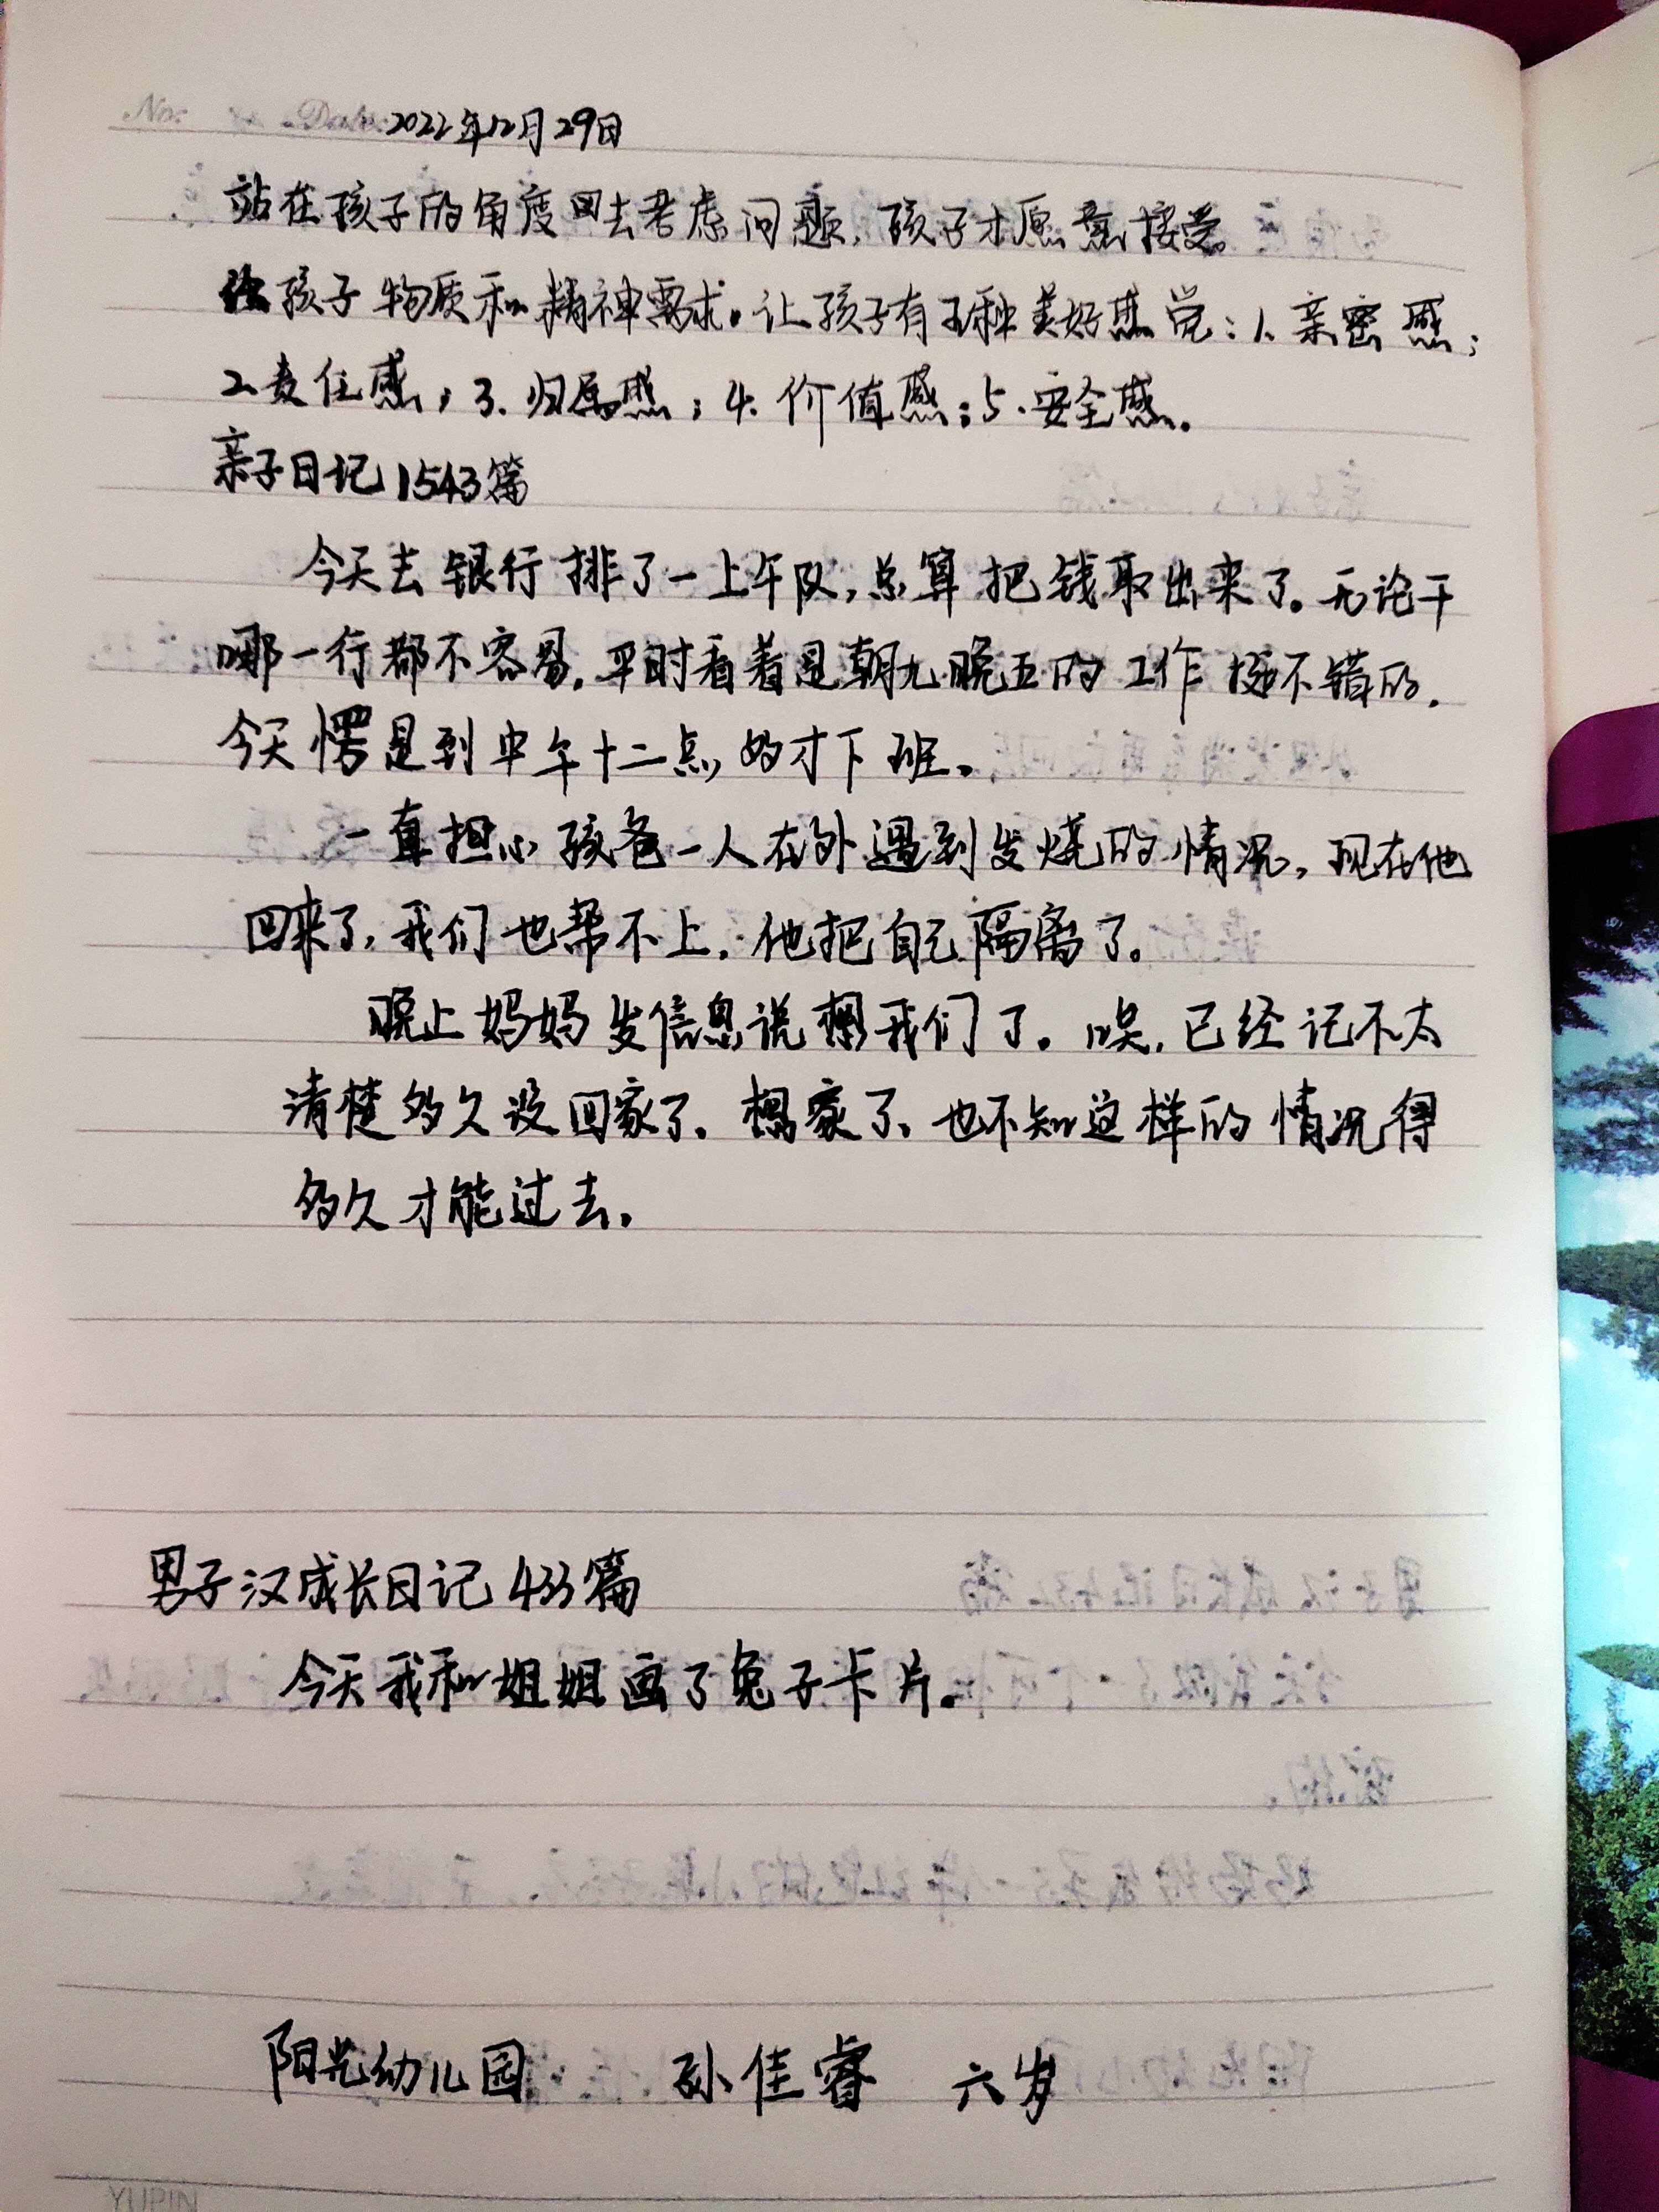 No: Date: 2022年12月29日
站在孩子的角度去考虑问题，孩子才愿意接受。
给孩子物质和精神需求。让孩子有五种美好感觉：1、亲密感；
2责任感；3、归属感；4、价值感；5、安全感。
亲子日记1543篇
今天去银行排了一上午队，总算把钱取出来了。无论干
哪一行都不容易，平时看着是朝九晚五的工作挺不错的，
今天愣是到中午十二点多才下班。
一直担心孩爸一人在外遇到发烧的情况，现在他
回来了，我们也帮不上，他把自己隔离了。
晚上妈妈发信息说想我们了。唉，已经记不太
清楚多久没回家了，想家了、也不知这样的情况得
多久才能过去。
男子汉成长日记433篇
今天我和姐姐画了兔子卡片。
阳光幼儿园 孙佳睿 六岁
YUPIN